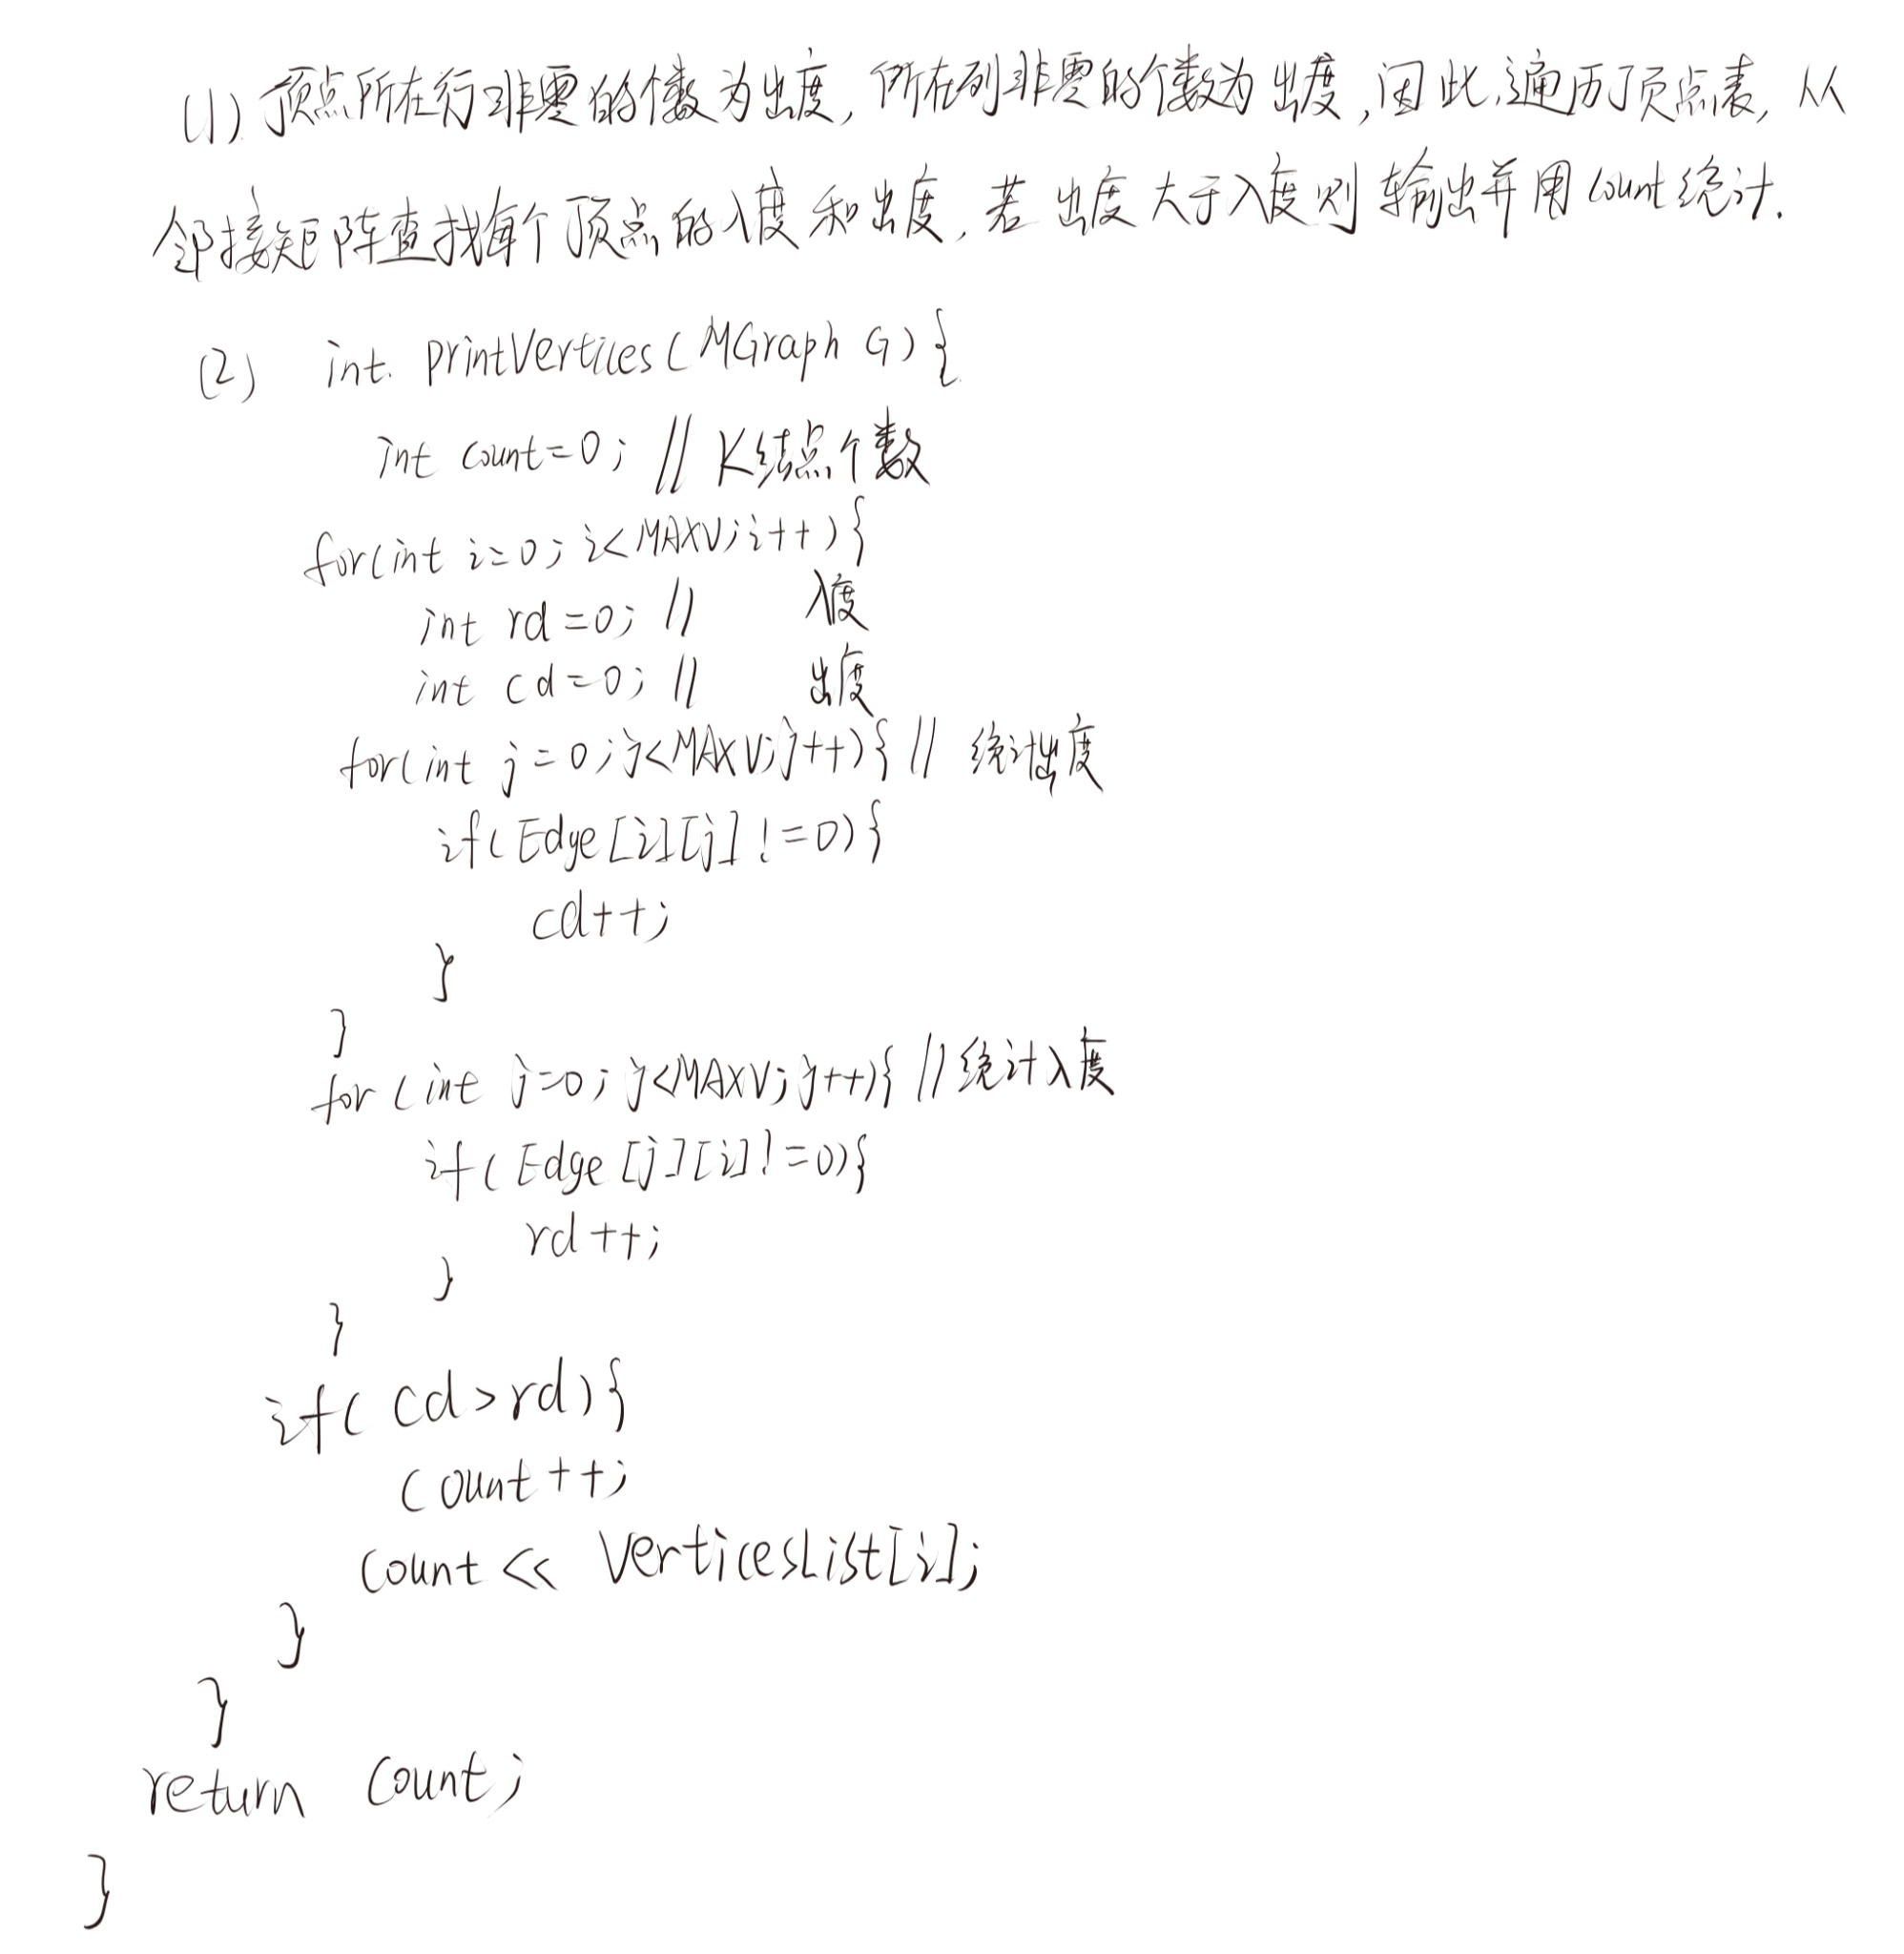 (1) 顶点所在行非零的个数为出度,所在列非零的个数为出度,因此,遍历顶点表,从
邻接矩阵查找每个顶点的入度和出度,若出度大于入度则输出并用count统计.
(2) int. printVertices(MGraph G){
int count=0; // K结点个数
for(int i=0; i<MAXV; i++){
int rd=0; // 入度
int cd=0; // 出度
for(int j=0; j<MAXV; j++){ // 统计出度
if(Edge[i][j] !=0){
cd++;
}
}
for (int j=0; j<MAXV; j++){ // 统计入度
if(Edge[j][i] !=0){
rd++;
}
}
if( cd>rd){
count++;
count << VerticesList[i];
}
}
return count;
}